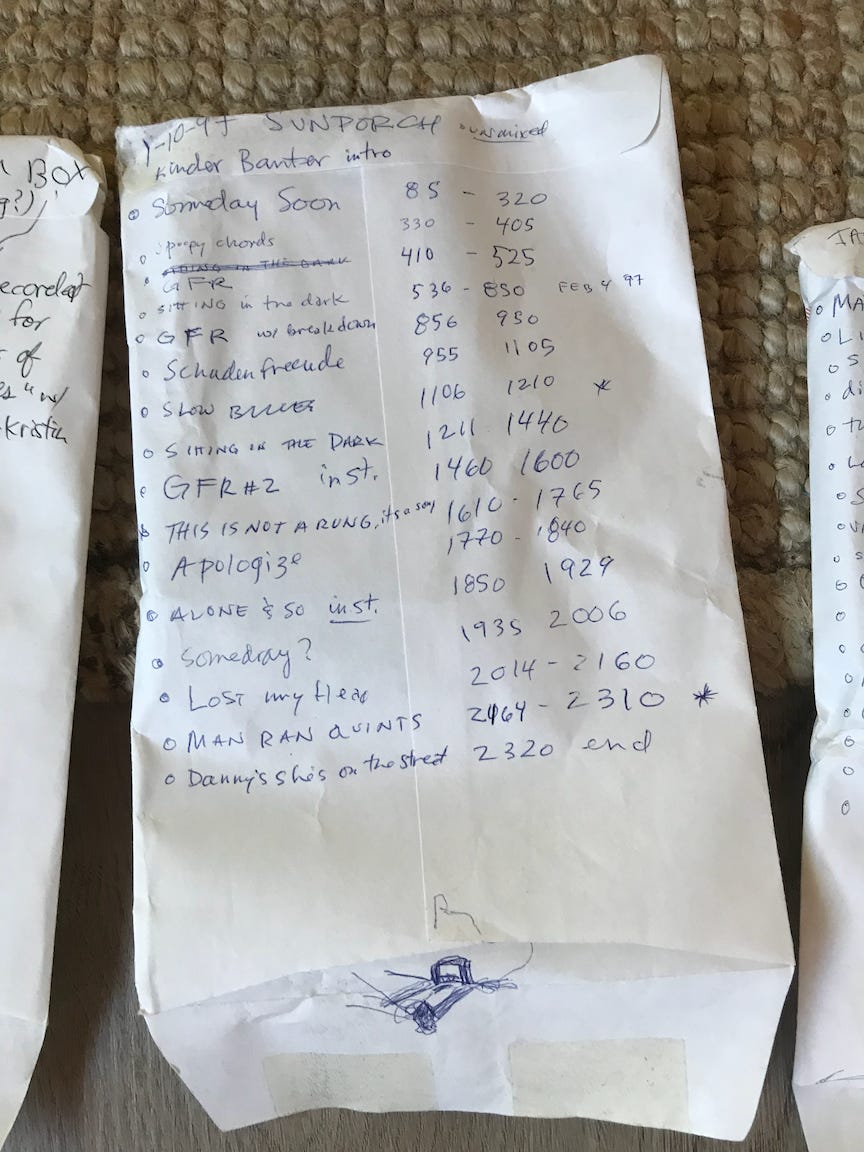 1-10-97 SUNPORCH unmixed
Kinder Banter intro
Someday Soon 85 - 320
chords 330 - 405
GFR 410 - 525
SITTING in the dark 536 - 850 FEB 4 97
GFR w/ breakdown 856 950
Schadenfreude 955 1105
SLOW 1106 1210 *
SITTING IN THE DARK 1211 1440
GFR #2 inst. 1460 1600
THIS IS NOT A RUNG, it's a song 1610 - 1765
Apologize 1770 - 1840
ALONE & SO inst. 1850 1929
Someday? 1935 2006
LOST my Head 2014 - 2160
MAN RAN QUINTS - 2310 *
Danny's she's on the street 2320 end
BOX
for
of
w/
Kristin
MA